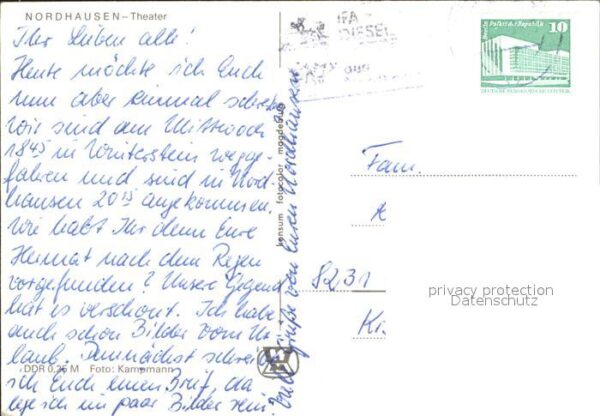 NORDHAUSEN – Theater
Ihr Lieben alle!
Heute möchte ich Euch
nun aber einmal schreiben
Wir sind am Mittwoch
18 45 in Winterstein wegge-
fahren und sind in Nord-
hausen 20 15 angekommen.
Wie habt Ihr denn Eure
Heimat nach dem Regen
vorgefunden? Unsere Gegend
hat es verschont. Ich habe
auch schon Bilder vom Ur-
laub. Demnächst schreibe
ich Euch einen Brief, da
lege ich ein paar Bilder rein?
DDR 0,25 M Foto: Kampmann
Viele Grüße von Euren Nordhäusern
konsum fotocolor magdeburg
IFA
DIESEL
aus
Berlin, Palast der Republik
10
DEUTSCHE DEMOKRATISCHE REPUBLIK
Fam.
8231
Ki
privacy protection
Datenschutz